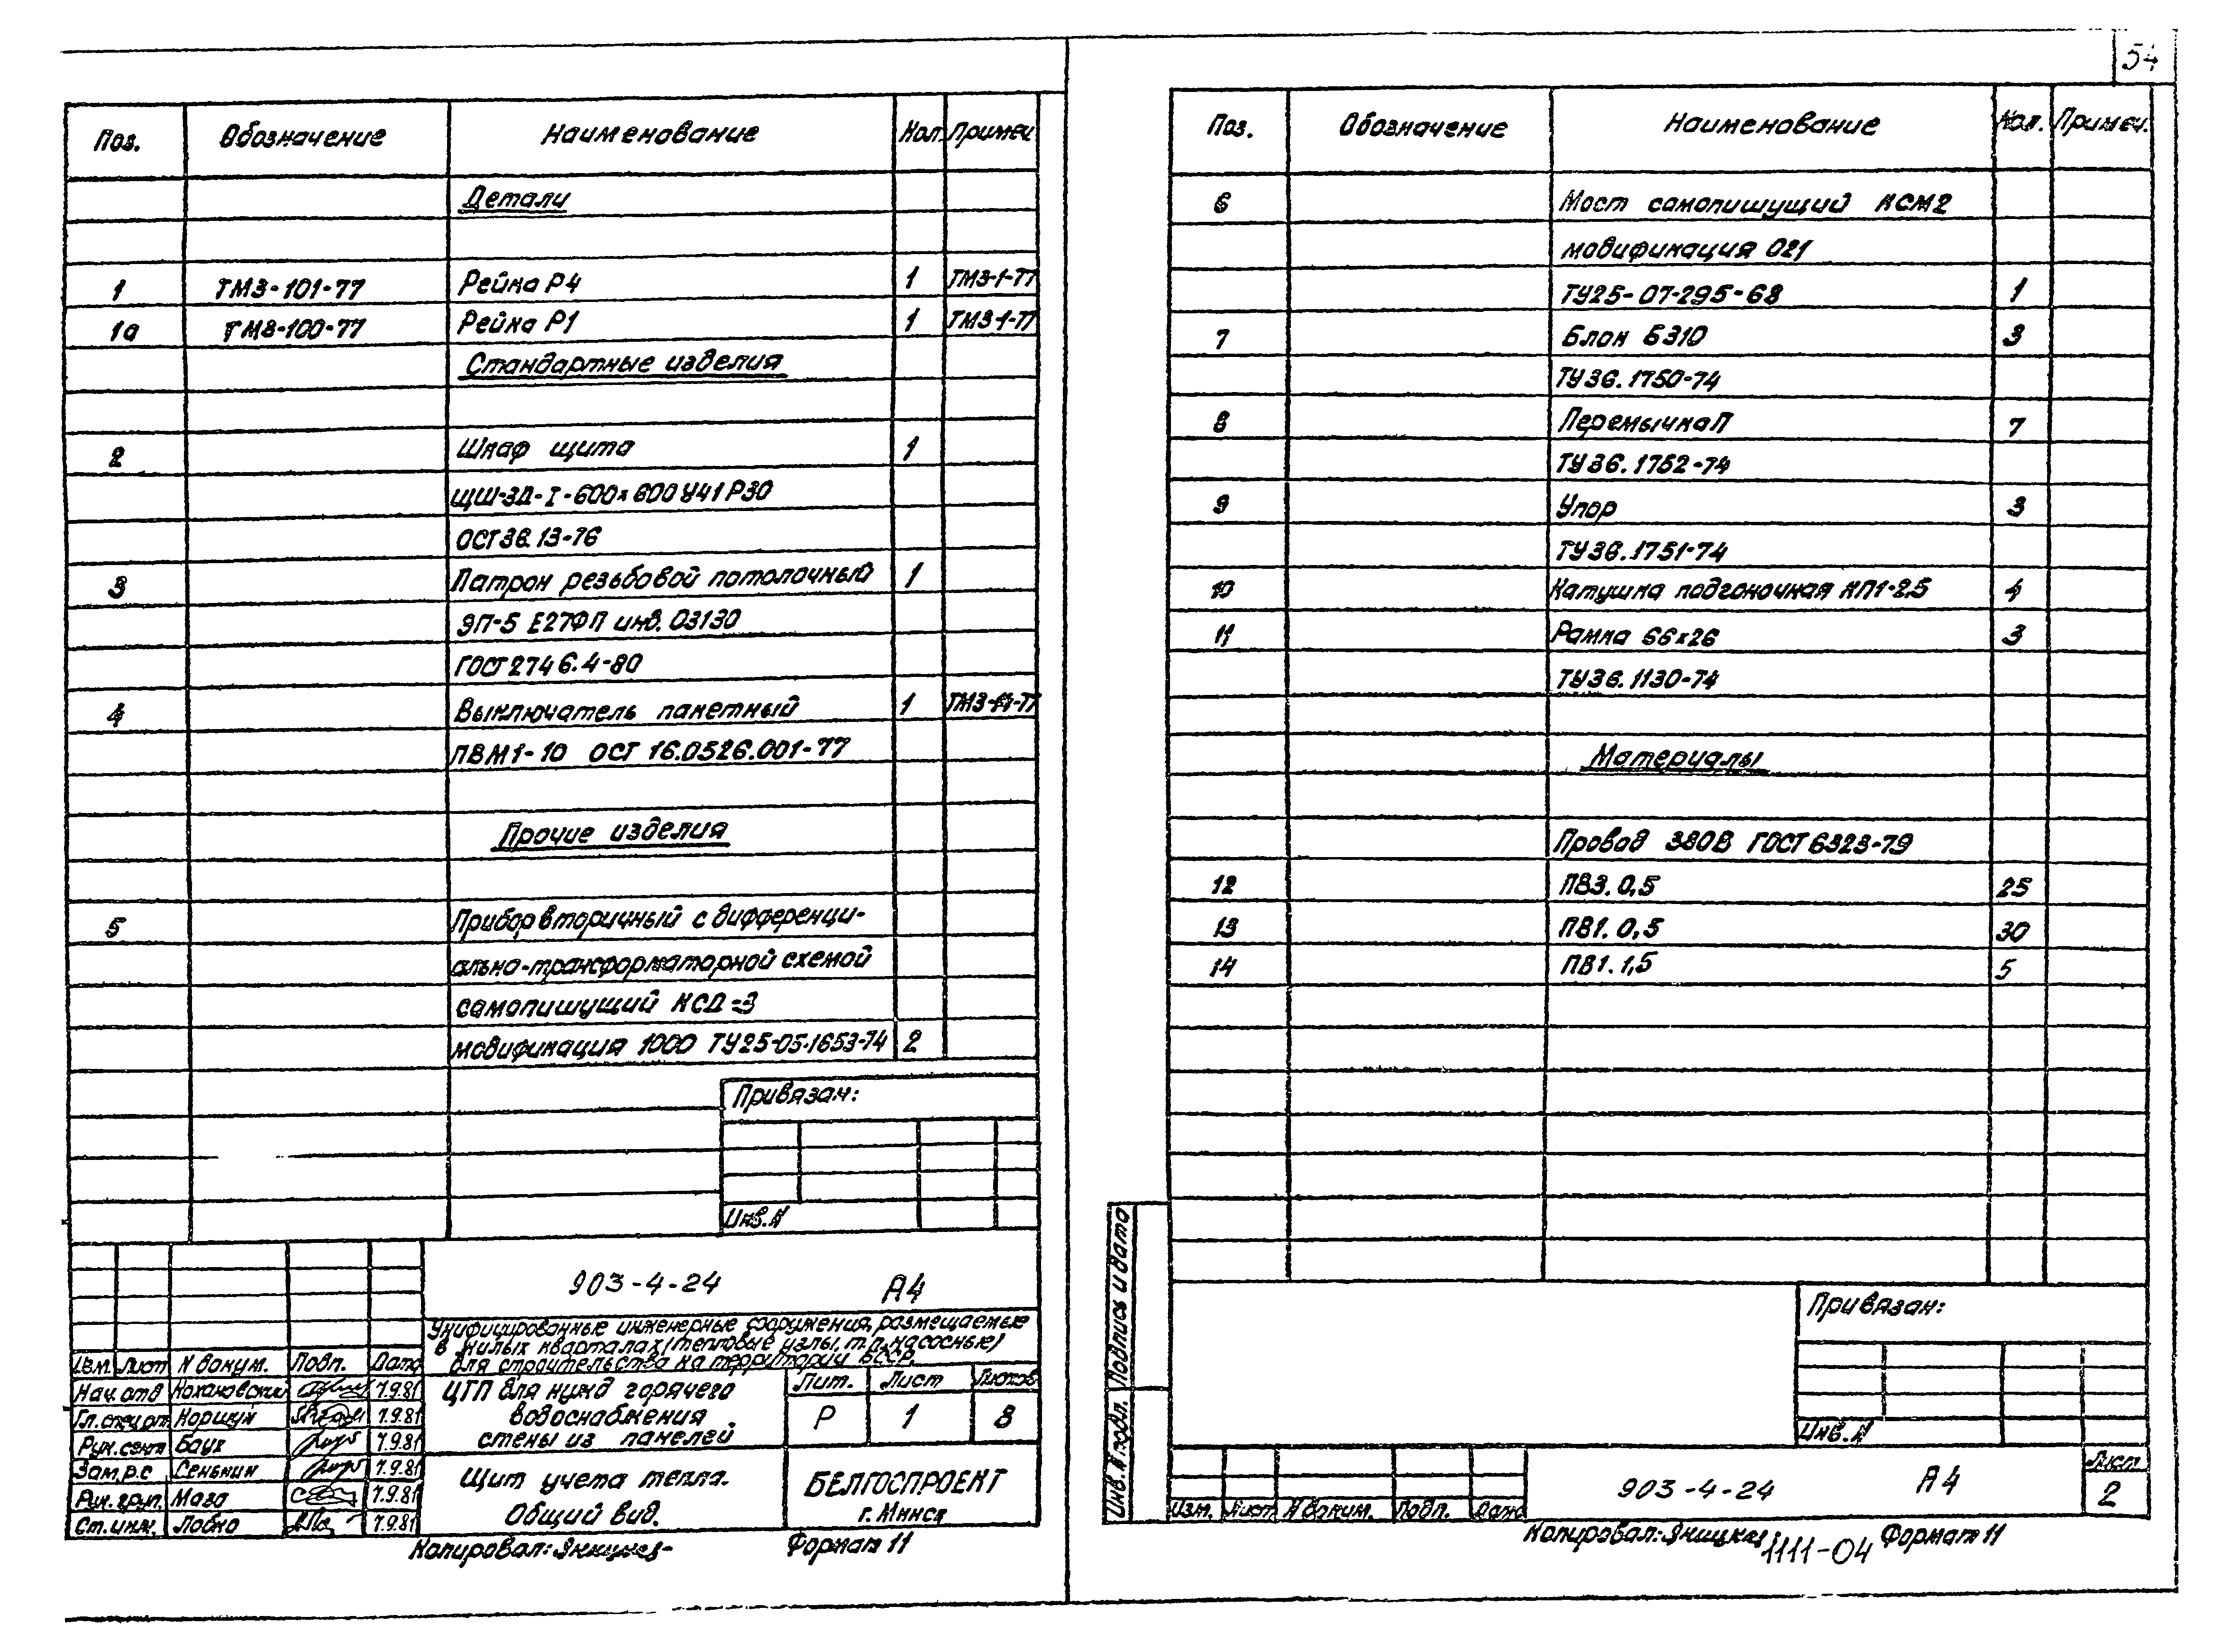 54
Поз. Обозначение Наименование Кол. Примеч.
Детали
1 ТМ3-101-77 Рейка Р4 1 ТМ3-1-77
1а ТМ3-100-77 Рейка Р1 1 ТМ3-1-77
Стандартные изделия
2 Шкаф щита 1
ЩШ-ЗД-I-600х600 У41 Р30
ОСТ 36.13-76
3 Патрон резьбовой потолочный 1
ЭП-5 Е27ФП инв. 03130
ГОСТ 2746.4-80
4 Выключатель пакетный 1
ПВМ1-10 ОСТ 16.0526.001-77
Прочие изделия
5 Прибор вторичный с дифференци-
ально-трансформаторной схемой
самопишущий КСД-3
модификация 1000 ТУ25-05.1653-74 2
Привязан:
Инв. №
903-4-24 А4
Унифицированные инженерные сооружения, размещаемые
в жилых кварталах (тепловые узлы, т.п. насосные)
для строительства на территории БССР.
Изм. Лист № докум. Подп. Дата
Нач. отд Кохановский 7.9.81
Гл. спец. от. Коршун 7.9.81
Рук. сект Баух 7.9.81
Зам. р.с Сенькин 7.9.81
Рук. груп. Маза 7.9.81
Ст. инж. Лобко 7.9.81
ЦТП для нужд горячего
водоснабжения
стены из панелей
Лит. Лист Листов
Р 1 8
Щит учета тепла.
Общий вид.
БЕЛГОСПРОЕКТ
г. Минск
Копировал: Формат 11
Поз. Обозначение Наименование Кол. Примеч.
6 Мост самопишущий КСМ2
модификация 021
ТУ25-07-295-68 1
7 Блок Б310 3
ТУ36.1750-74
8 Перемычка П 7
ТУ36.1752-74
9 Упор 3
ТУ36.1751-74
10 Катушка подгоночная КП1-2,5 4
11 Рамка 66х26 3
ТУ36.1130-74
Материалы
Провод 380В ГОСТ 6323-79
12 ПВ3. 0,5 25
13 ПВ1. 0,5 30
14 ПВ1. 1,5 5
Привязан:
Инв. №
Инв. № подл. Подпись и дата
Изм. Лист № докум. Подп. Дата
903-4-24 А4
Лист
2
Копировал: 1111-04 Формат 11